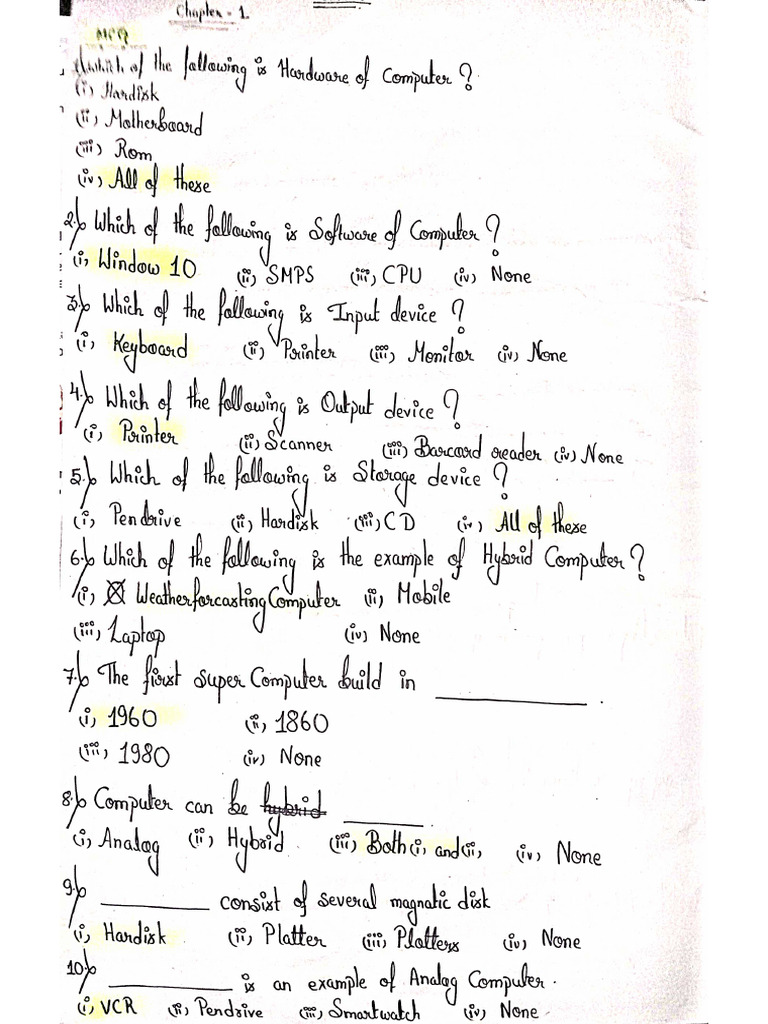 Chapter - 1.
MCQ
Which of the following is Hardware of Computer ?
(i) Hardisk
(ii) Motherboard
(iii) Rom
(iv) All of these
2.) Which of the following is Software of Computer ?
(i) Window 10 (ii) SMPS (iii) CPU (iv) None
3.) Which of the following is Input device ?
(i) Keyboard (ii) Printer (iii) Monitor (iv) None
4.) Which of the following is Output device ?
(i) Printer (ii) Scanner (iii) Barcard reader (iv) None
5.) Which of the following is Storage device ?
(i) Pendrive (ii) Hardisk (iii) CD (iv) All of these
6.) Which of the following is the example of Hybrid Computer ?
(i) Weatherforcasting Computer (ii) Mobile
(iii) Laptop (iv) None
7.) The first super Computer build in __________ .
(i) 1960 (ii) 1860
(iii) 1980 (iv) None
8.) Computer can be hybrid ______
(i) Analog (ii) Hybrid (iii) Both (i) and (ii) (iv) None
9.) ________ consist of several magnatic disk
(i) Hardisk (ii) Platter (iii) Plotters (iv) None
10.) _________ is an example of Analog Computer.
(i) VCR (ii) Pendrive (iii) Smartwatch (iv) None.